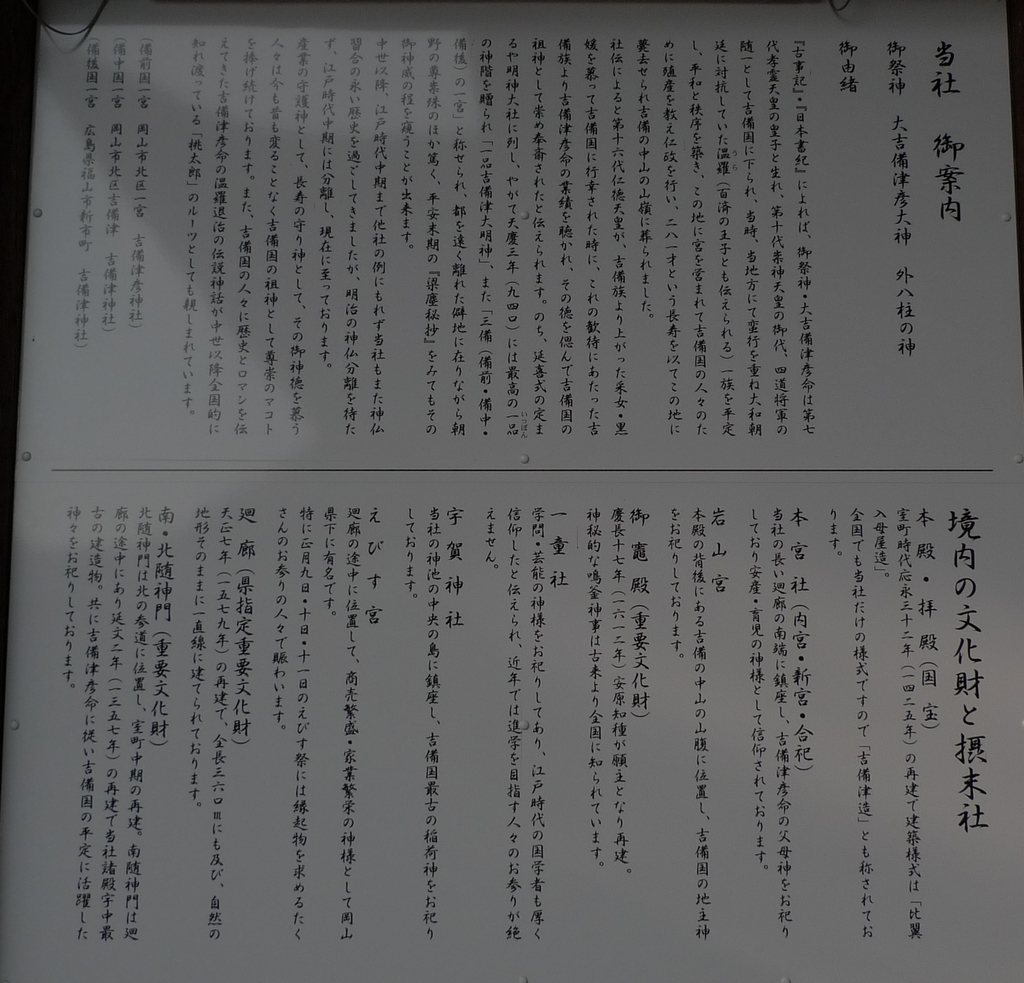 当社 御案内
御祭神 大吉備津彦大神 外八柱の神
御由緒
『古事記』・『日本書紀』によれば、御祭神・大吉備津彦命は第七
代孝霊天皇の皇子と生れ、第十代崇神天皇の御代、四道将軍の
随一として吉備国に下られ、当時、当地方にて蛮行を重ね大和朝
廷に対抗していた温羅（百済の王子とも伝えられる）一族を平定
うら
し、平和と秩序を築き、この地に宮を営まれて吉備国の人々のた
めに殖産を教え仁政を行い、二八一才という長寿を以てこの地に
薨去せられ吉備の中山の山嶺に葬られました。
社伝によると第十六代仁徳天皇が、吉備族より上がった采女・黒
媛を慕って吉備国に行幸された時に、これの歓待にあたった吉
備族より吉備津彦命の業績を聴かれ、その徳を偲んで吉備国の
祖神として崇め奉斎されたと伝えられます。のち、延喜式の定ま
るや明神大社に列し、やがて天慶三年（九四〇）には最高の一品
いっぽん
の神階を贈られ「一品吉備津大明神」、また「三備（備前・備中・
備後）の一宮」と称せられ、都を遠く離れた僻地に在りながら朝
野の尊崇殊のほか篤く、平安末期の『梁塵秘抄』をみてもその
御神威の程を窺うことが出来ます。
中世以降、江戸時代中期まで他社の例にもれず当社もまた神仏
習合の永い歴史を過ごしてきましたが、明治の神仏分離を待た
ず、江戸時代中期には分離し、現在に至っております。
産業の守護神として、長寿の守り神として、その御神徳を慕う
人々は今も昔も変ることなく吉備国の祖神として尊崇のマコト
を捧げ続けております。また、吉備国の人々に歴史とロマンを伝
えてきた吉備津彦命の温羅退治の伝説神話が中世以降全国的に
知れ渡っている「桃太郎」のルーツとしても親しまれています。
（備前国一宮 岡山市北区一宮 吉備津彦神社）
（備中国一宮 岡山市北区吉備津 吉備津神社）
（備後国一宮 広島県福山市新市町 吉備津神社）
境内の文化財と摂末社
本殿・拝殿（国宝）
室町時代応永三十二年（一四二五年）の再建で建築様式は「比翼
入母屋造」。
全国でも当社だけの様式ですので「吉備津造」とも称されてお
ります。
本宮社（内宮・新宮・合祀）
当社の長い廻廊の南端に鎮座し、吉備津彦命の父母神をお祀り
しており安産・育児の神様として信仰されております。
岩山宮
本殿の背後にある吉備の中山の山腹に位置し、吉備国の地主神
をお祀りしております。
御竈殿（重要文化財）
慶長十七年（一六一二年）安原知種が願主となり再建。
神秘的な鳴釜神事は古来より全国に知られています。
一童社
学問・芸能の神様をお祀りしてあり、江戸時代の国学者も厚く
信仰したと伝えられ、近年では進学を目指す人々のお参りが絶
えません。
宇賀神社
当社の神池の中央の島に鎮座し、吉備国最古の稲荷神をお祀り
しております。
えびす宮
廻廊の途中に位置して、商売繁盛・家業繁栄の神様として岡山
県下に有名です。
特に正月九日・十日・十一日のえびす祭には縁起物を求めるたく
さんのお参りの人々で賑わいます。
廻廊（県指定重要文化財）
天正七年（一五七九年）の再建で、全長三六〇ｍにも及び、自然の
地形そのままに一直線に建てられております。
南・北随神門（重要文化財）
北随神門は北の参道に位置し、室町中期の再建。南随神門は廻
廊の途中にあり延文二年（一三五七年）の再建で当社諸殿宇中最
古の建造物。共に吉備津彦命に従い吉備国の平定に活躍した
神々をお祀りしております。